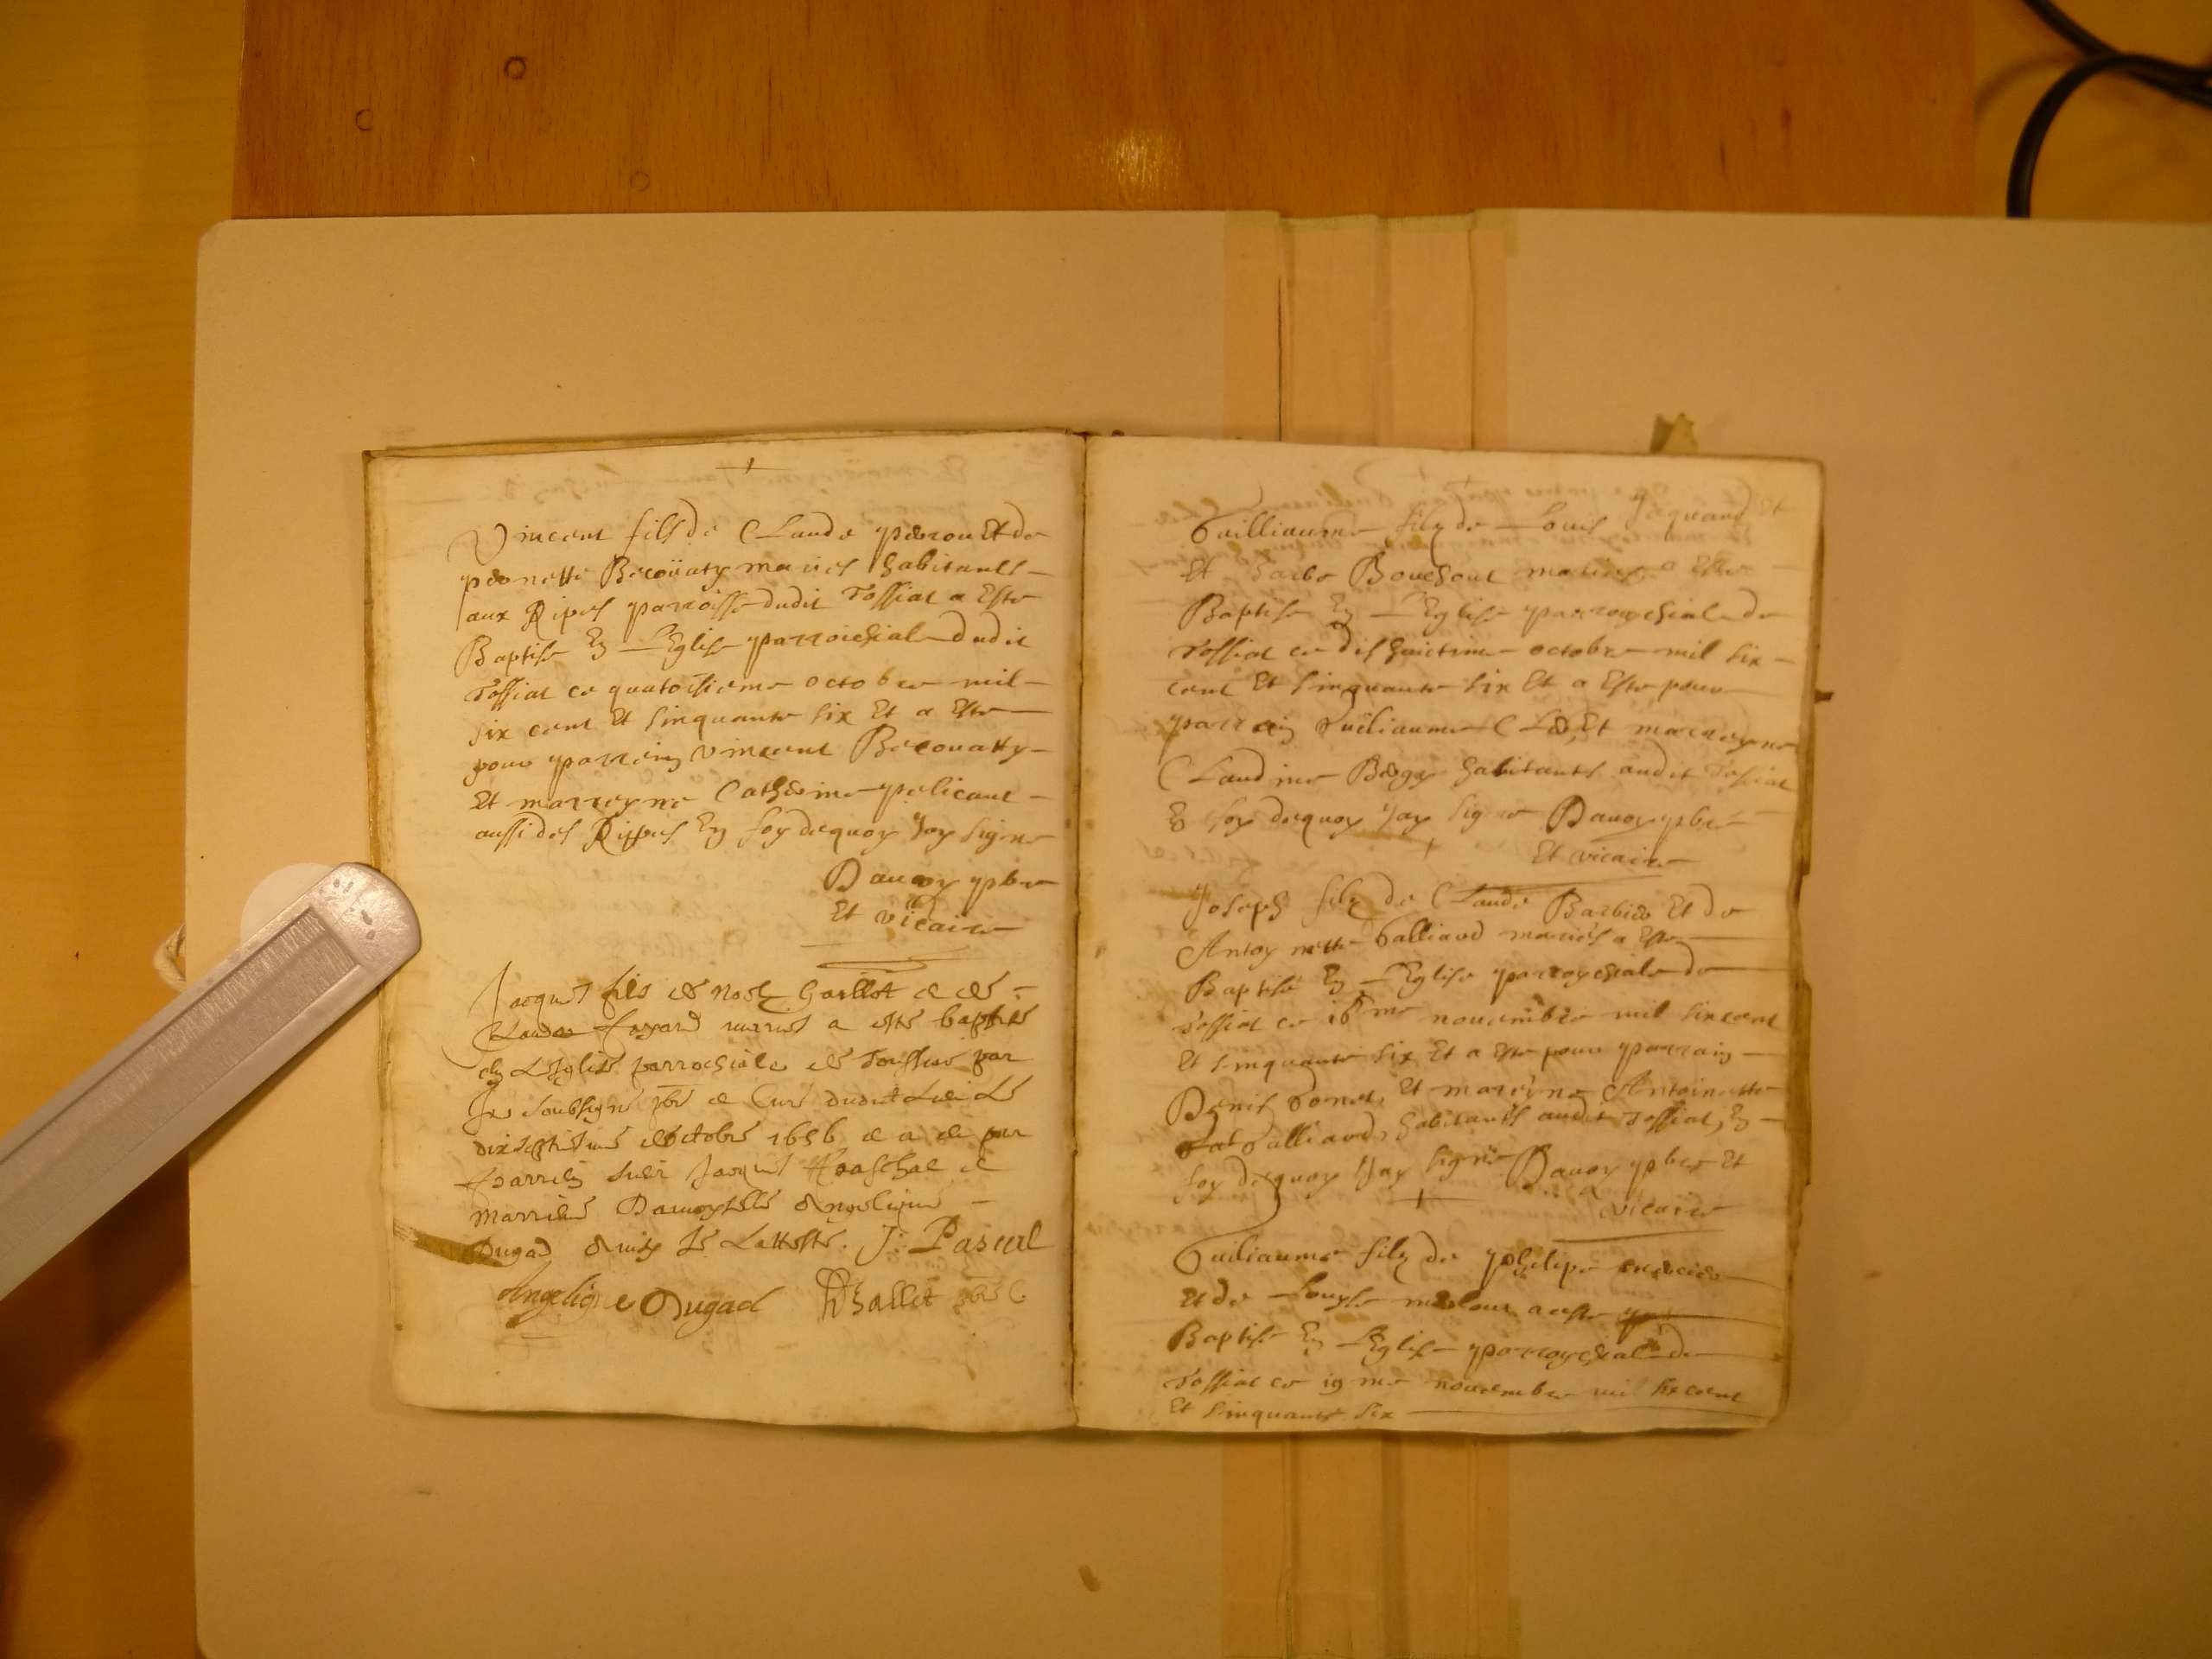 Vincent fils de Claude peron Et de
pernette Becoüaty mariés habitants
aux Ripes parroisse dudit Tossiat a Este
Baptise En L'Eglise parroichiale dudit
Tossiat ce quatorsieme octobre mil
six cent Et sinquante six Et a Este
pour parrein vincent Becouatty
Et marreyne Catherine pelicant
aussi des Rippes En foy dequoy Jay signe
Dauoy pbre
Et vicaire
Jacques fils de Noel Gaillot et de
Claude mariés a esté baptisé
en L'eglise parrochiale de Toussia par
Je soubsigné pbre et Curé dudit Lieu Le
dixseptieme octobre 1656 et a été par
parrein sieur Jacques Paschal et
marriene Damoyselle Angelique
Dugad Ainsy Je L'atteste. J. Pascal
Angelique Dugad Dhallet pbre C.
Guilliaume filz de Louis Jequand
Et Barbe Bouchout mariés a Este
Baptise En L'Eglise parroychiale de
Tossiat ce dishuictime octobre mil six
cent Et sinquante six Et a Este pour
parrein Guiliaume Cler, Et marreyne
Claudine Bergy habitants audit Tossiat
En foy dequoy Jay signe Dauoy pbre
Et vicaire
Joseph filz de Claude Barbier Et de
Antoynette Galliard mariés a Este
Baptisé En L'Eglise parroychiale de
Tossiat ce me nouembre mil six cent
Et sinquante six Et a Este pour parrain
Denis Et marreyne Antoinette
Galliard, habitants audit Tossiat, En
foy dequoy Jay signé Dauoy pbre Et
vicaire
Guiliaume filz de phelipe
Et de Louyse a este
Baptise En L'Eglise parroychiale de
Tossiat ce 19 me nouembre mil six cent
Et sinquante six